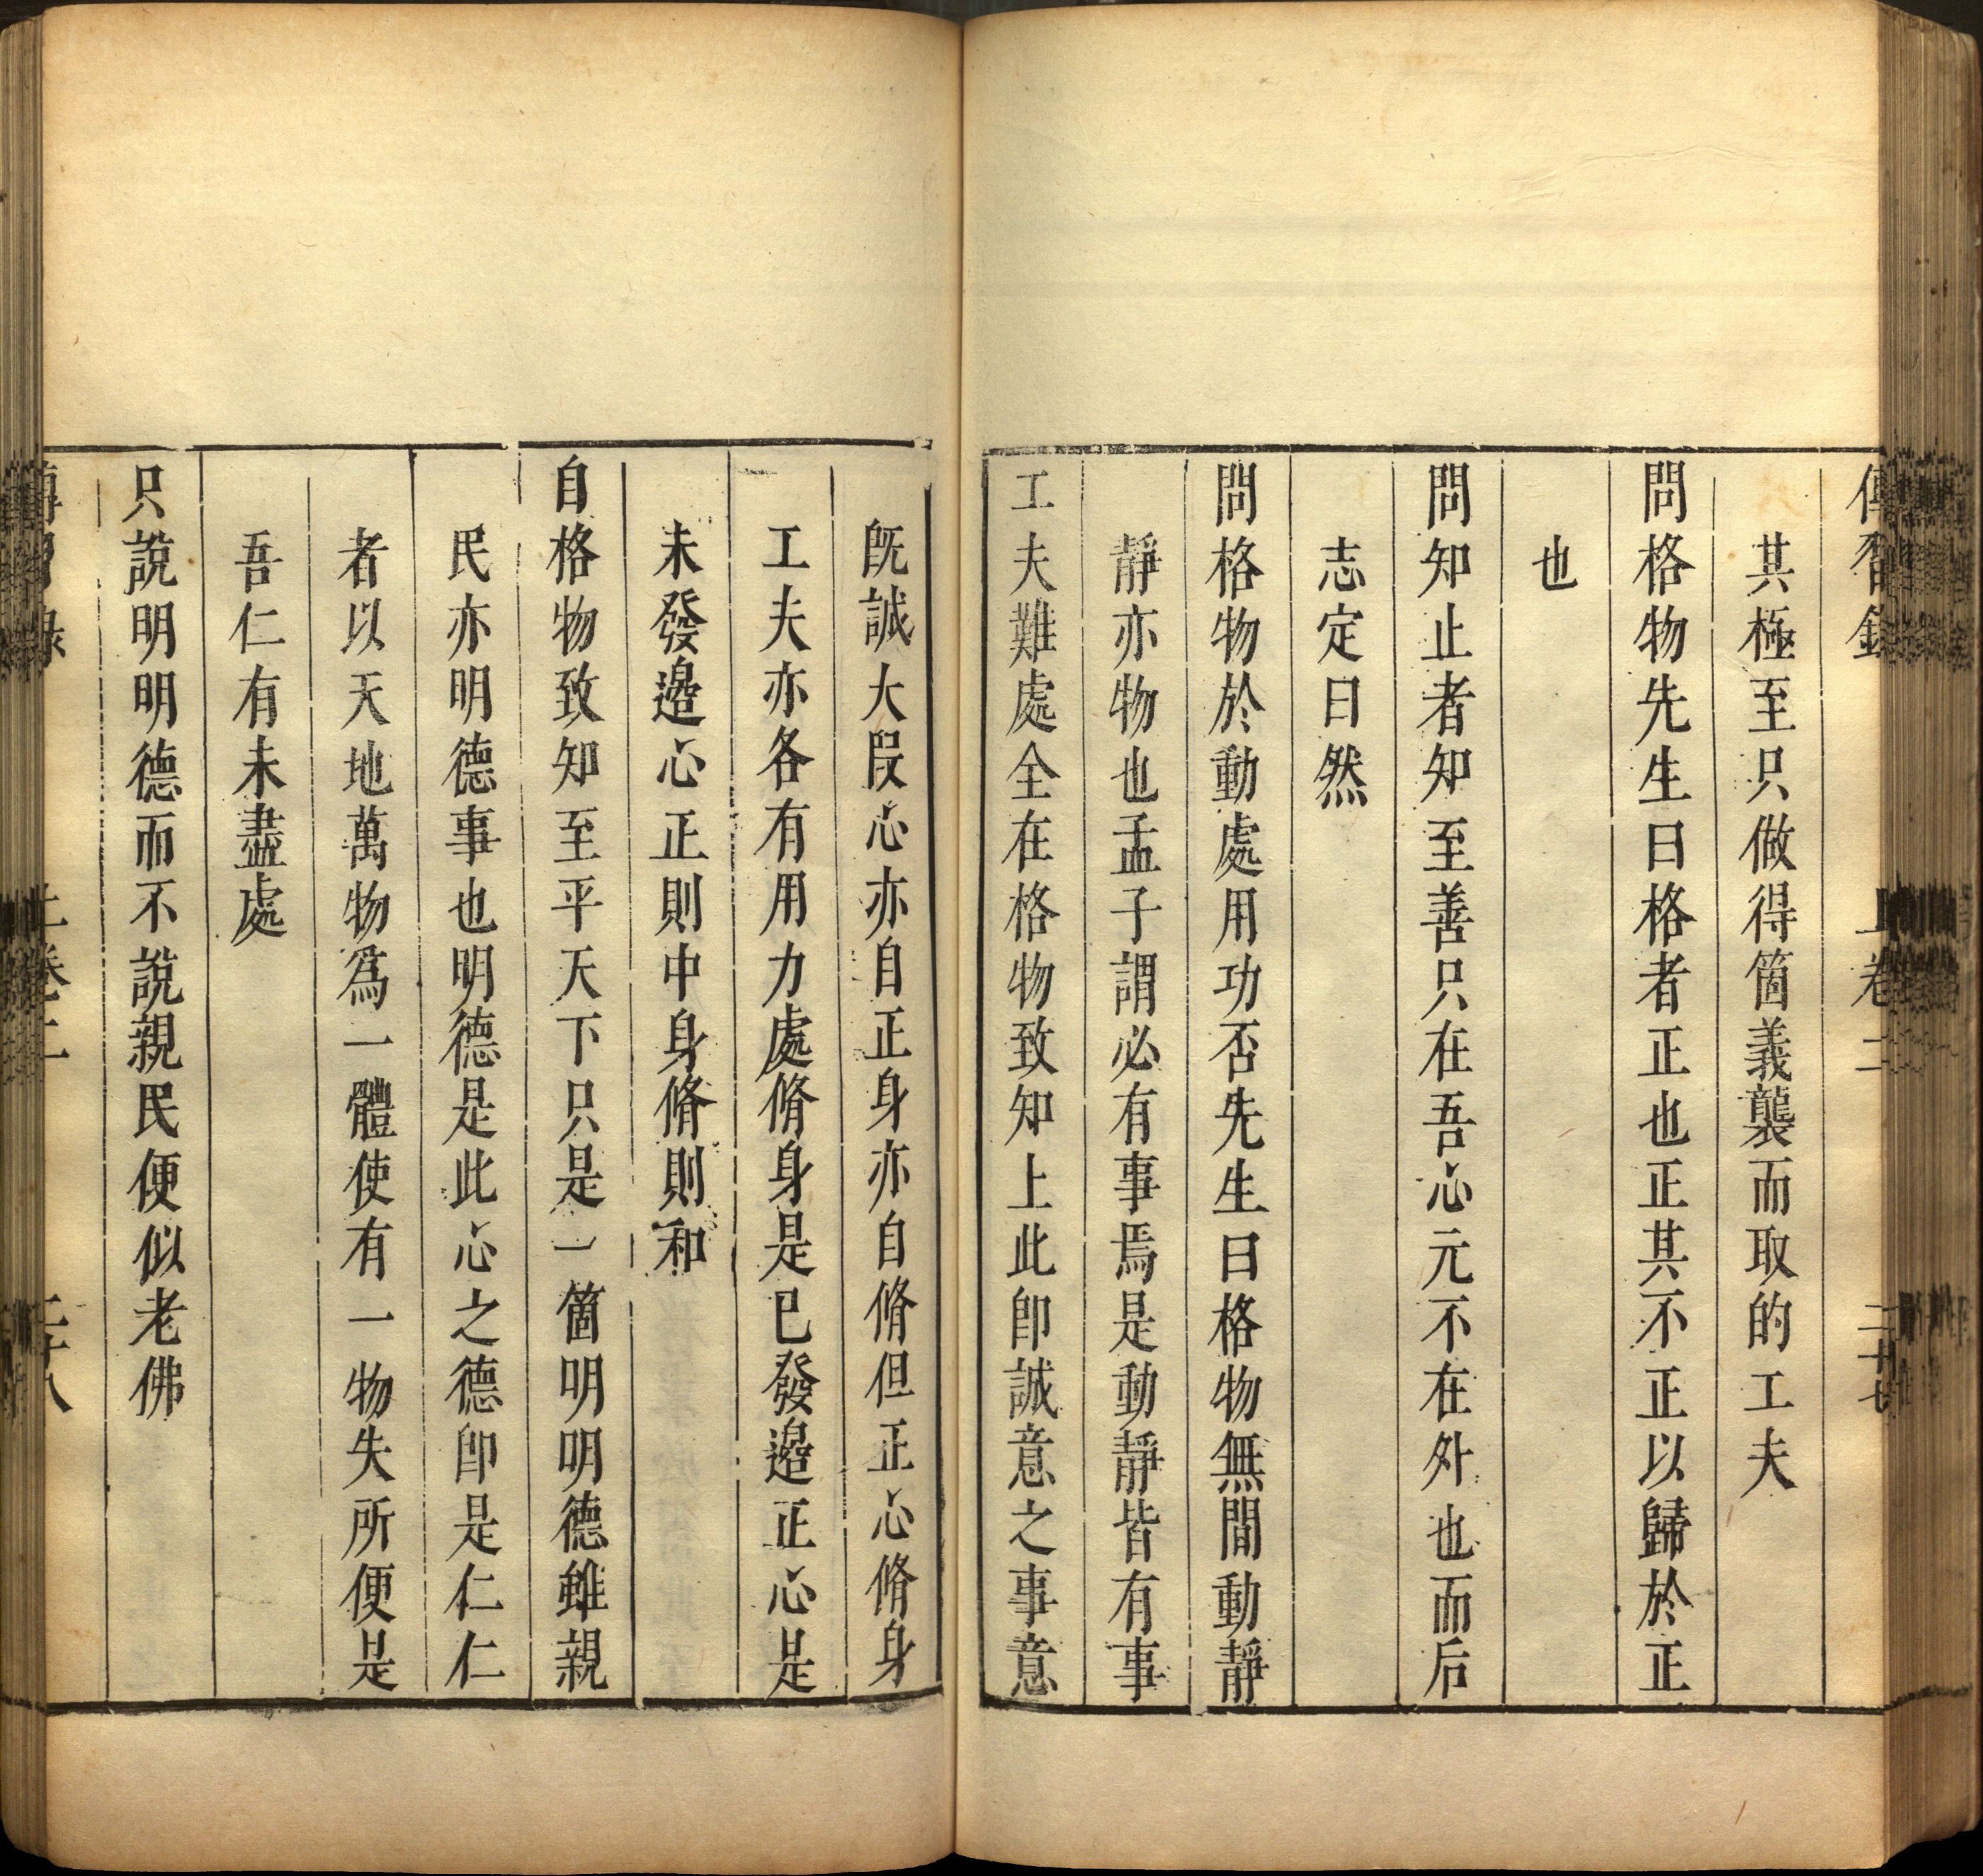 傳習錄 上卷二 二十七
其極至只做得箇義襲而取的工夫
問格物先生曰格者正也正其不正以歸於正
也
問知止者知至善只在吾心元不在外也而后
志定曰然
問格物於動處用功否先生曰格物無間動靜
靜亦物也孟子謂必有事焉是動靜皆有事
工夫難處全在格物致知上此卽誠意之事意
旣誠大叚心亦自正身亦自脩但正心脩身
工夫亦各有用力處脩身是已發邉正心是
未發邉心正則中身脩則和
自格物致知至平天下只是一箇明明德雖親
民亦明德事也明德是此心之德卽是仁仁
者以天地萬物爲一體使有一物失所便是
吾仁有未盡處
只說明明德而不說親民便似老佛
傳習錄 上卷二 二十八